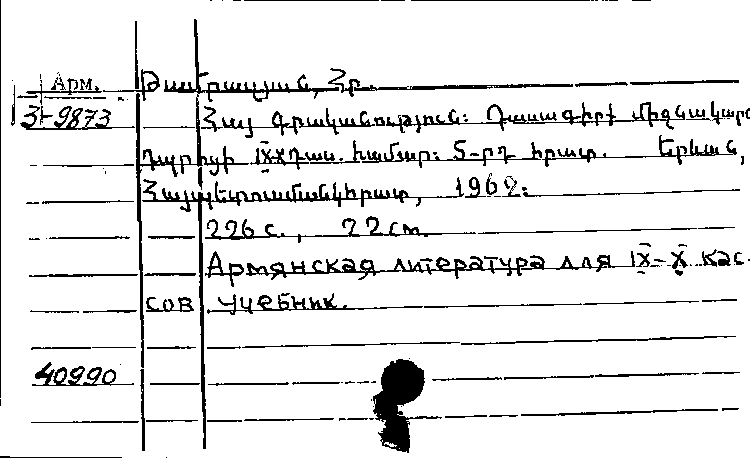 Арм.
Թամրազյան, Հր.
3-9873
Հայ գրականություն: Դասագիրք միջնակարգ
դպրոցի IX-X դաս. համար: 5-րդ հրատ. Երևան,
Հայպետուսմանկհրատ, 1962:
226 с., 22 см.
Армянская литература для IX-X кас-
сов. Учебник.
40990